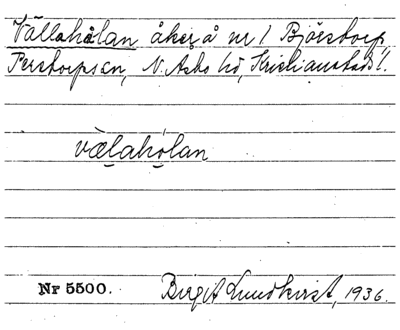 Vällahålan åker å nr 1 Björstorp,
Perstorps sn, N. Åsbo hd, Kristianstads l.
vælahólan
Nr 5500. Birgit Lundkvist, 1936.